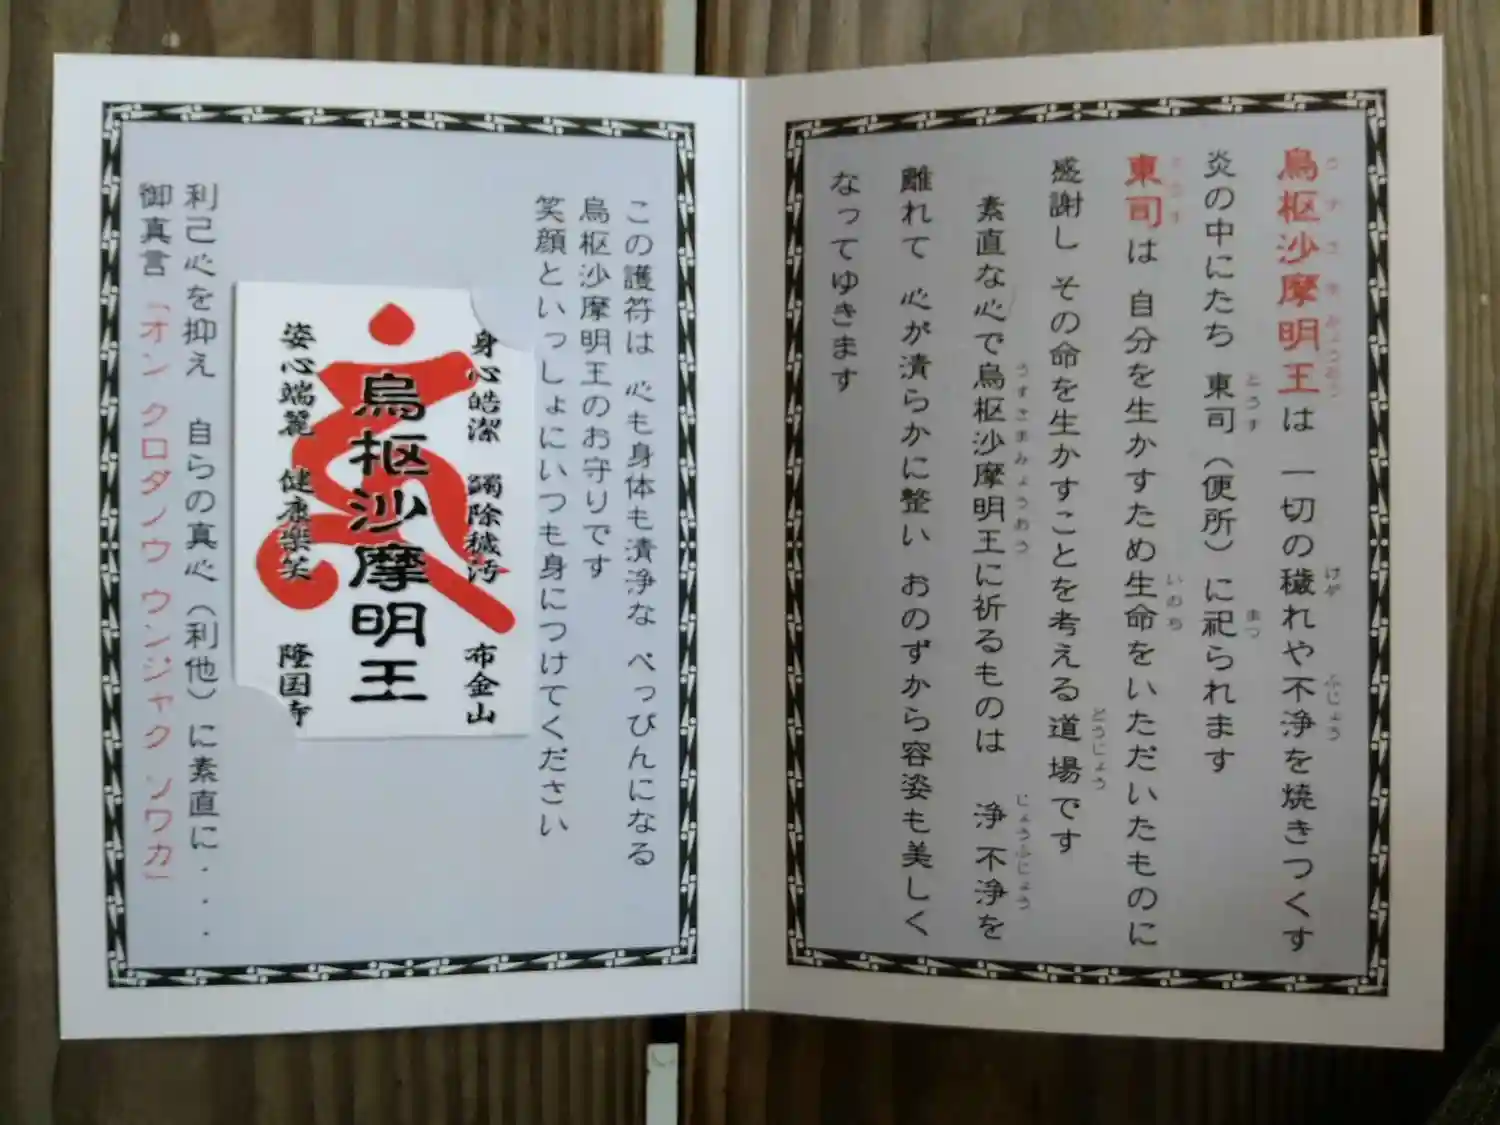 烏枢沙摩明王は 一切の穢れや不浄を焼きつくす
炎の中にたち 東司（便所）に祀られます
東司は 自分を生かすため生命をいただいたものに
感謝し その命を生かすことを考える道場です
素直な心で烏枢沙摩明王に祈るものは 浄不浄を
離れて 心が清らかに整い おのずから容姿も美しく
なってゆきます
この護符は 心も身体も清浄な べっぴんになる
烏枢沙摩明王のお守りです
笑顔といっしょにいつも身につけてください
身心皓潔 蠲除穢汚 布金山
烏枢沙摩明王
姿心端麗 健康楽笑 隆国寺
利己心を抑え 自らの真心（利他）に素直に・・・・
御真言「オン クロダノウ ウンジャク ソワカ」